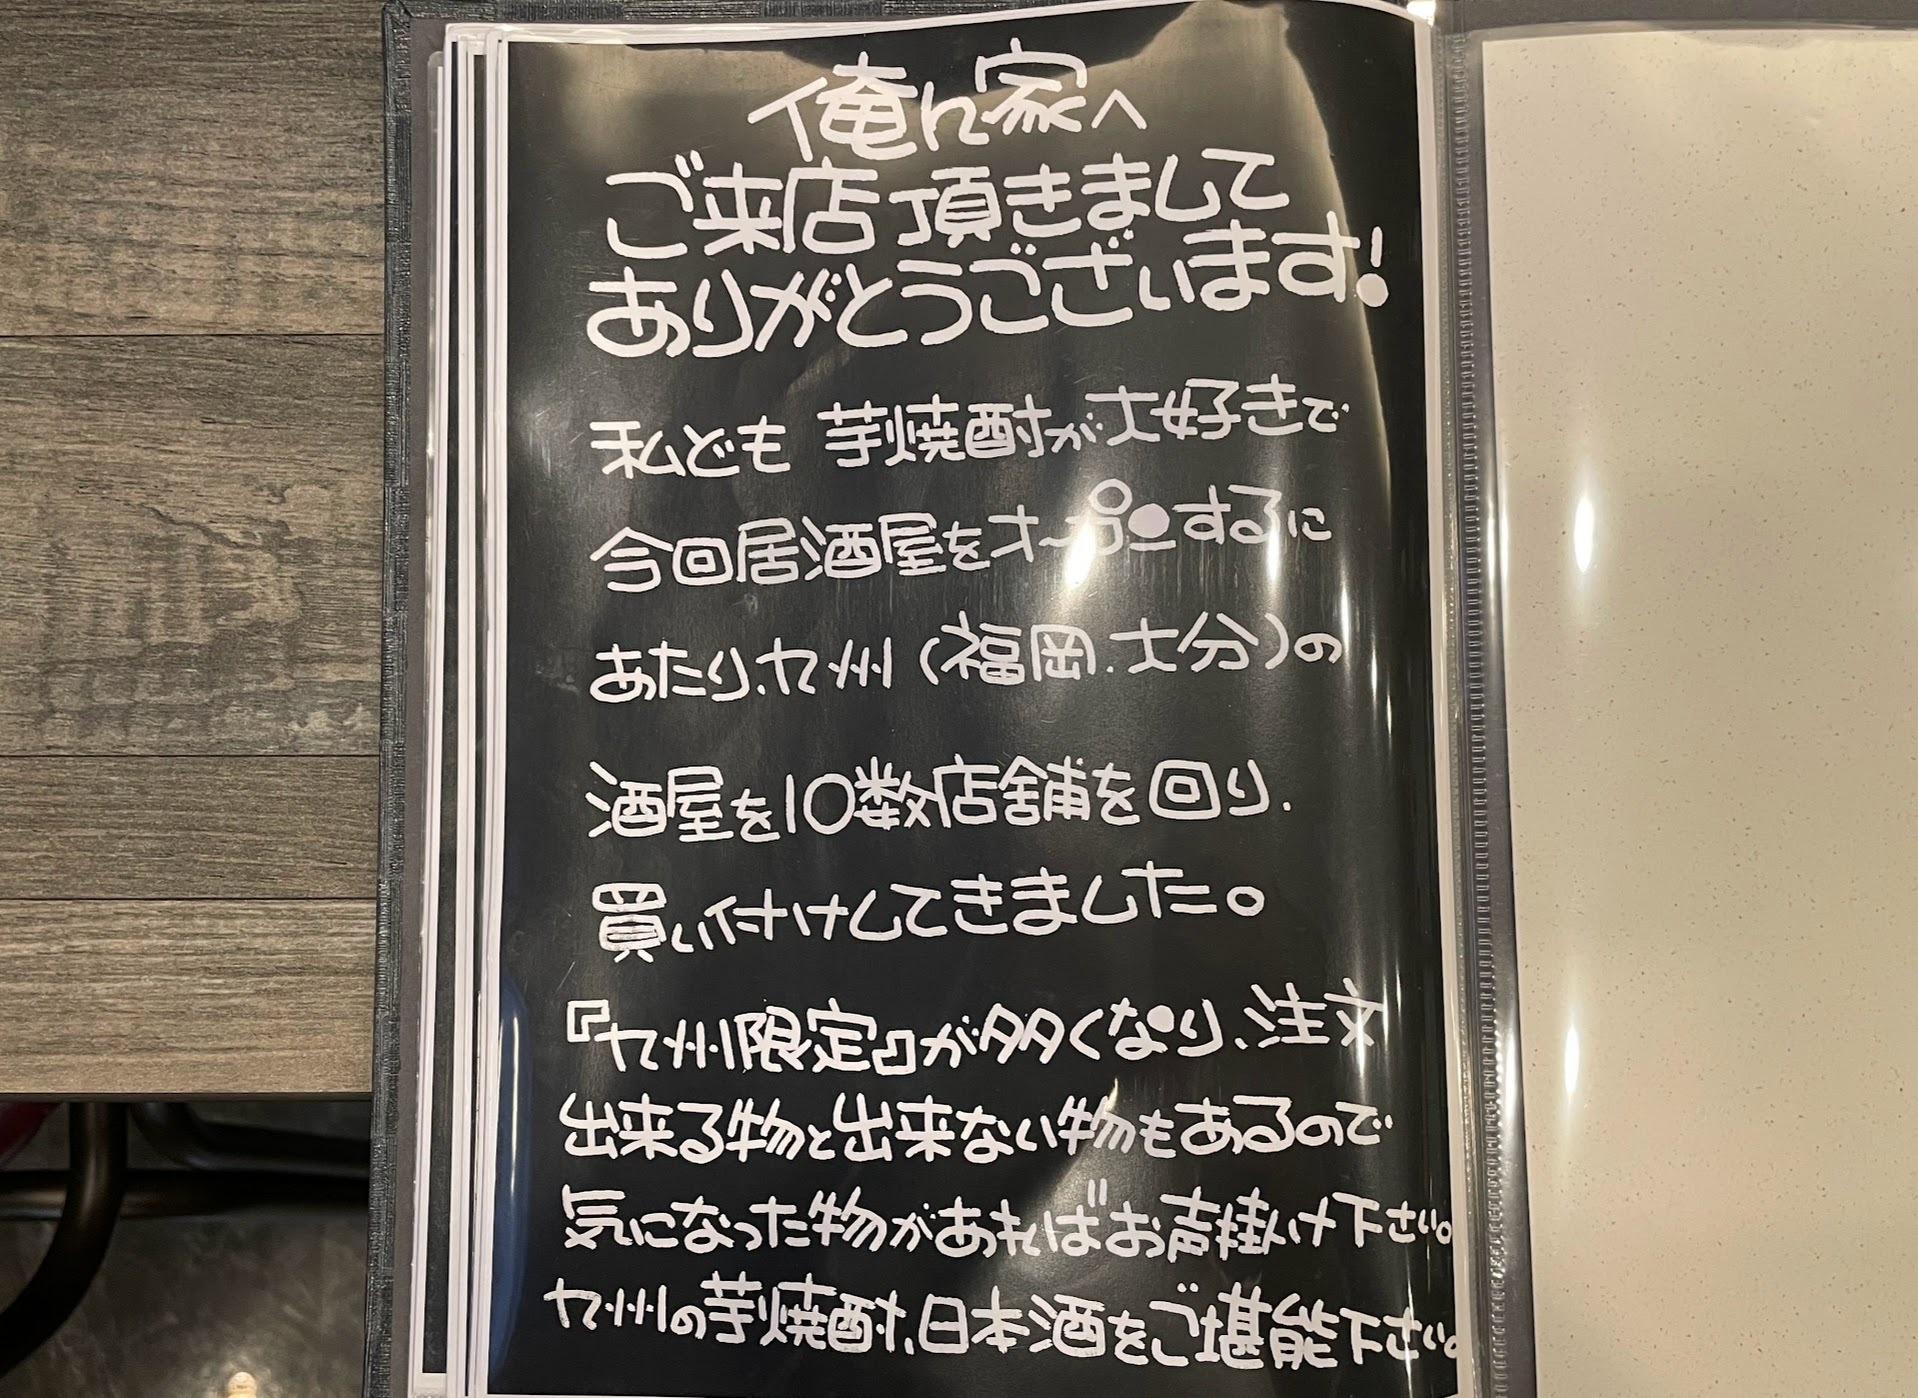 俺ん家へ
ご来店頂きまして
ありがとうございます!
私ども 芋焼酎が大好きで
今回居酒屋をオープンするに
あたり、九州(福岡.大分)の
酒屋を10数店舗を回り、
買い付けしてきました。
『九州限定』が多くなり、注文
出来る物と出来ない物もあるので
気になった物があればお声掛け下さい。
九州の芋焼酎、日本酒をご堪能下さい。